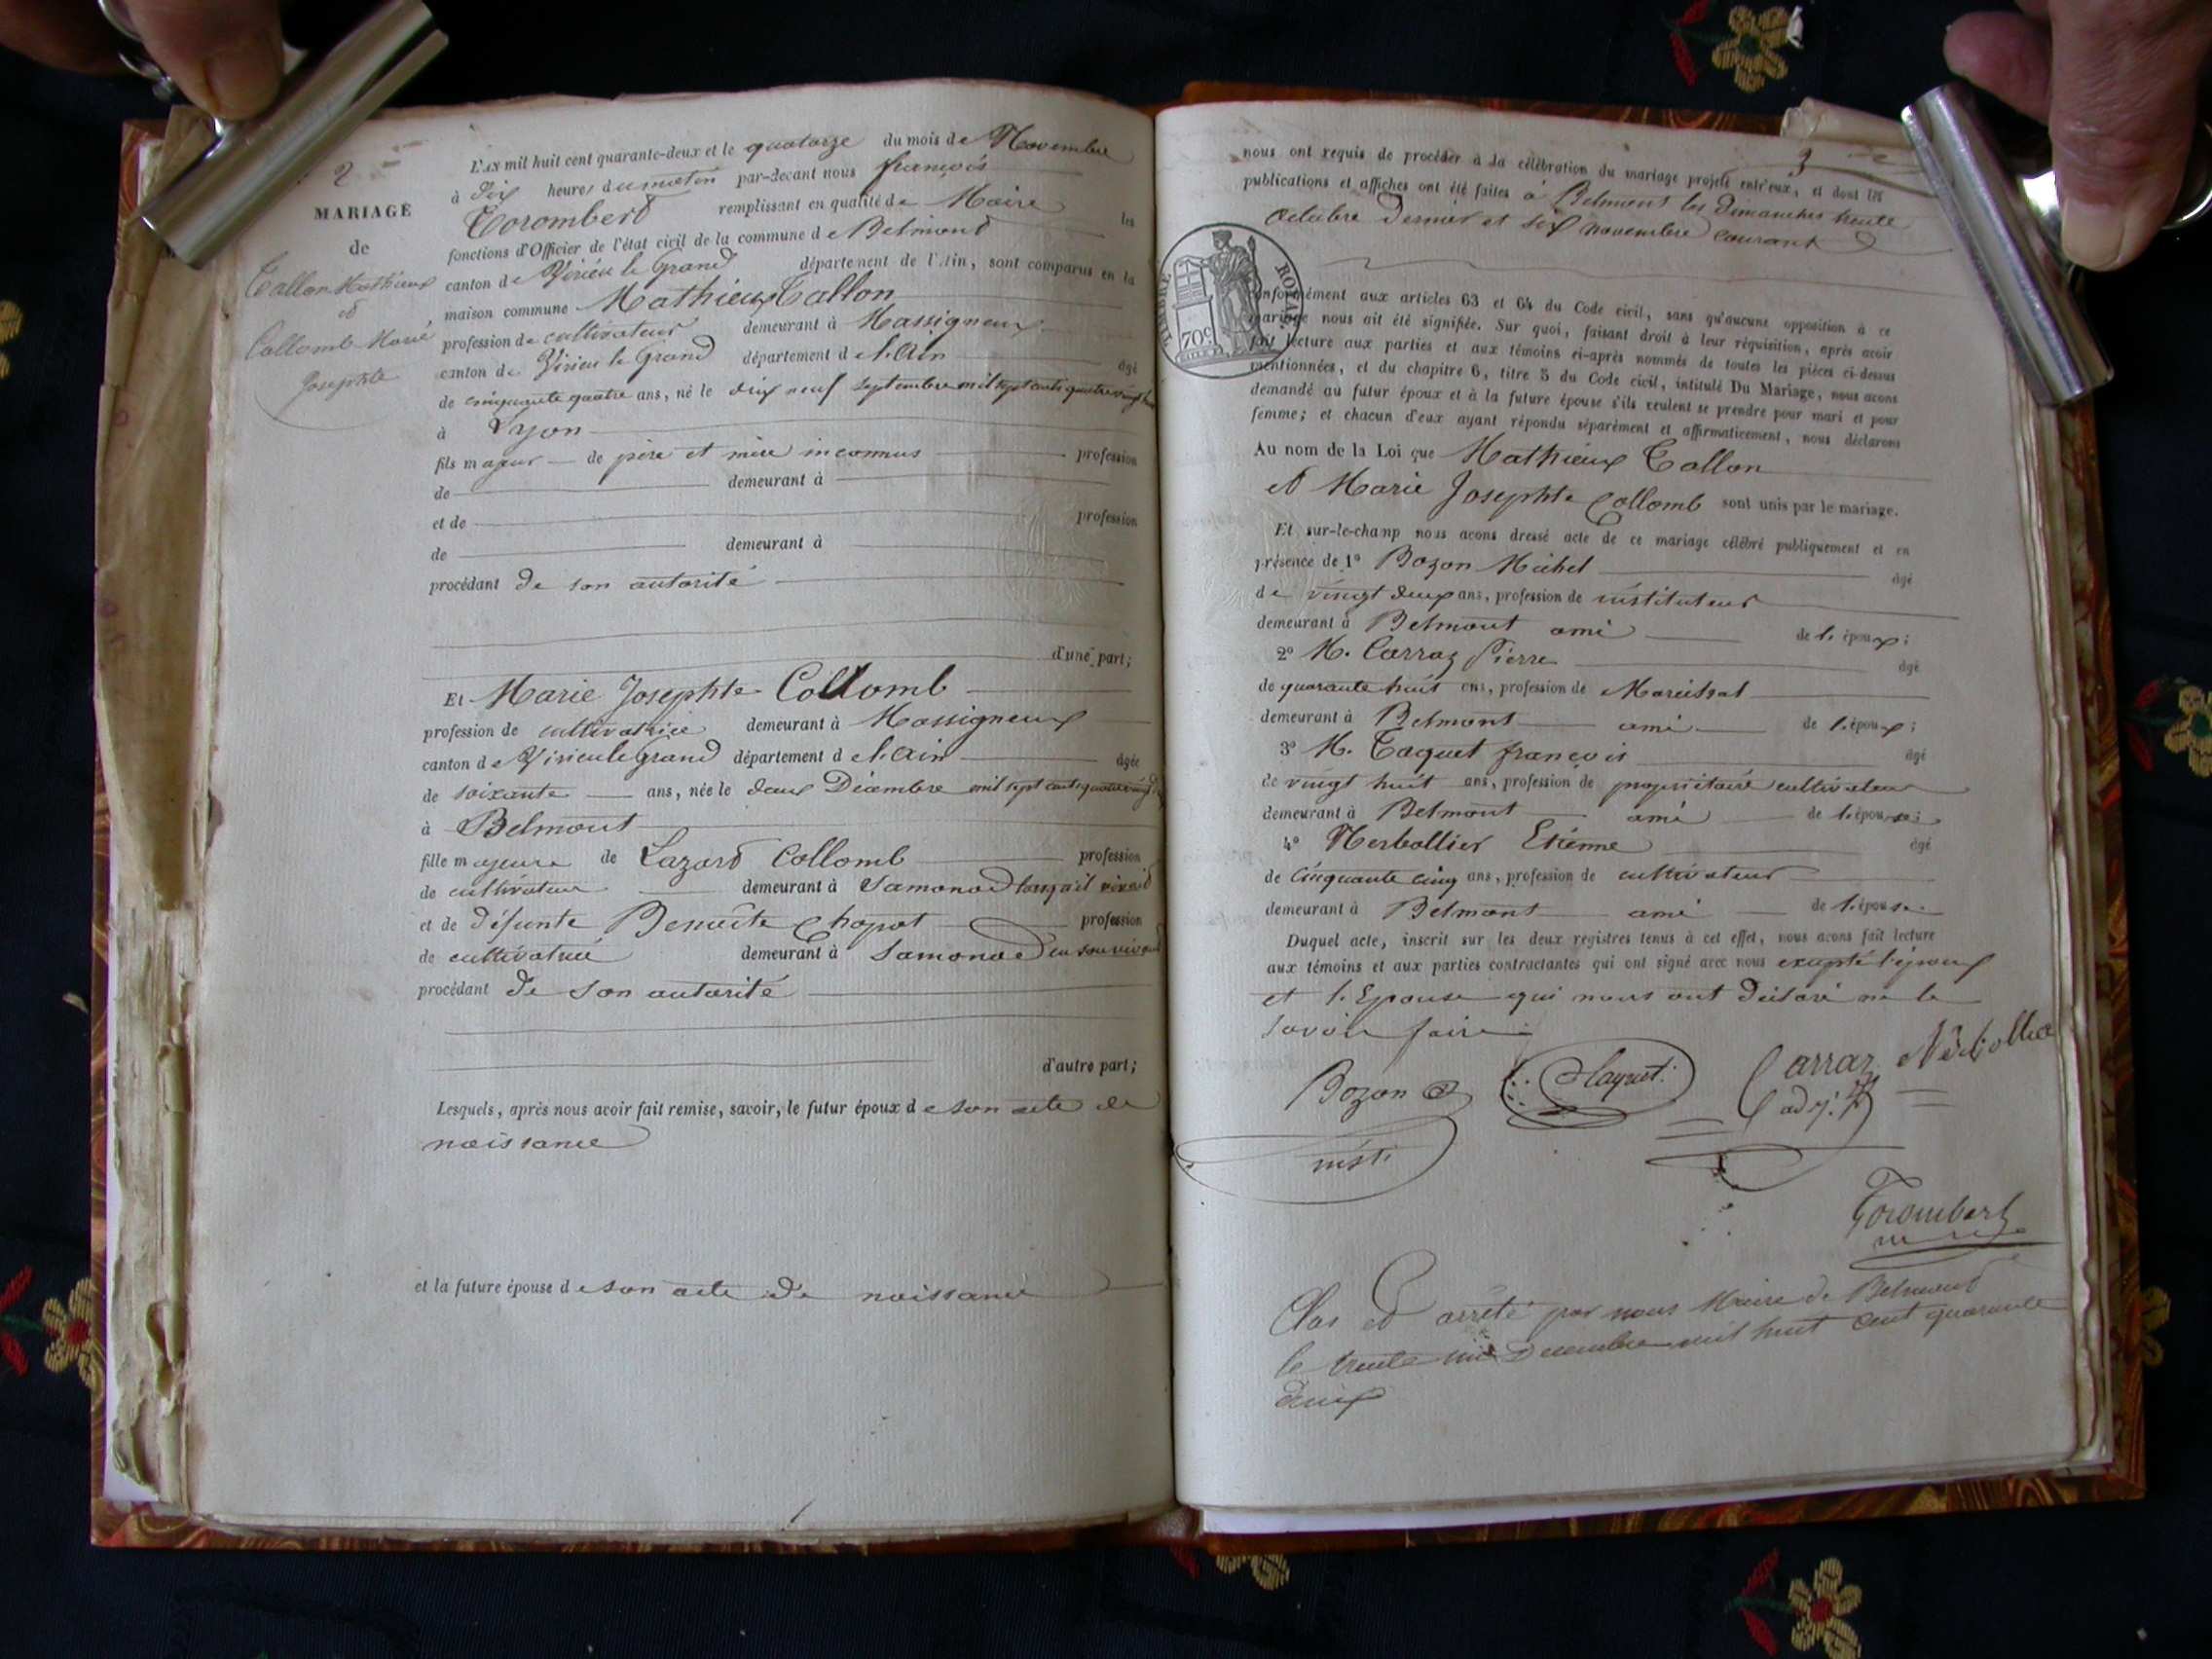 2
MARIAGE
de
Tallon Mathieux
et
Collomb Marie
Josephte
L'AN mil huit cent quarante-deux et le quatorze du mois de Novembre
à dix heures du matin par-devant nous françois
Torombert remplissant en qualité de Maire les
fonctions d'Officier de l'état civil de la commune de Belmont
canton de Virieu le Grand département de l'Ain, sont comparus en la
maison commune Mathieux Tallon
profession de cultivateur demeurant à Massigneux
canton de Virieu le Grand département de l'Ain âgé
de cinquante quatre ans, né le dix neuf septembre mil sept cent quatre vingt
à Lyon
fils majeur de père et mère inconnus profession
de demeurant à
et de profession
de demeurant à
procédant de son autorité
d'une part;
Et Marie Josephte Collomb
profession de cultivatrice demeurant à Massigneux
canton de Virieu le Grand département de l'Ain âgée
de soixante ans, née le deux Décembre mil sept cent quatre vingt
à Belmont
fille majeure de Lazard Collomb profession
de cultivateur demeurant à Samonod lorsqu'il vivait
et de défunte Benoite Chapot profession
de cultivatrice demeurant à Samonod en son vivant
procédant de son autorité
d'autre part;
Lesquels, après nous avoir fait remise, savoir, le futur époux de son acte de
naissance
et la future épouse de son acte de naissance
3
nous ont requis de procéder à la célébration du mariage projeté entr'eux, et dont les
publications et affiches ont été faites à Belmont les Dimanches trente
Octobre Dernier et six novembre courant
TIMBRE ROYAL
70c
conformément aux articles 63 et 64 du Code civil, sans qu'aucune opposition à ce
mariage nous ait été signifiée. Sur quoi, faisant droit à leur réquisition, après avoir
fait lecture aux parties et aux témoins ci-après nommés de toutes les pièces ci-dessus
mentionnées, et du chapitre 6, titre 5 du Code civil, intitulé Du Mariage, nous avons
demandé au futur époux et à la future épouse s'ils veulent se prendre pour mari et pour
femme; et chacun d'eux ayant répondu séparément et affirmativement, nous déclarons
Au nom de la Loi que Mathieux Tallon
et Marie Josephte Collomb sont unis par le mariage.
Et sur-le-champ nous avons dressé acte de ce mariage célébré publiquement et en
présence de 1º Bozon Michel âgé
de vingt deux ans, profession de instituteur
demeurant à Belmont ami de l'époux;
2º M. Carraz Pierre âgé
de quarante huit ans, profession de Maréchal
demeurant à Belmont ami de l'époux;
3º M. Taquet françois âgé
de vingt huit ans, profession de propriétaire cultivateur
demeurant à Belmont ami de l'épouse;
4º Nerbollier Etienne âgé
de Cinquante cinq ans, profession de cultivateur
demeurant à Belmont ami de l'épouse.
Duquel acte, inscrit sur les deux registres tenus à cet effet, nous avons fait lecture
aux témoins et aux parties contractantes qui ont signé avec nous excepté l'époux
et l'Epouse qui nous ont déclaré ne le
savoir faire
Bozon
insti
Taquet
Carraz
adj.t
Torombert
Clos et arrêté par nous Maire de Belmont
le trente un Decembre mil huit cent quarante
deux